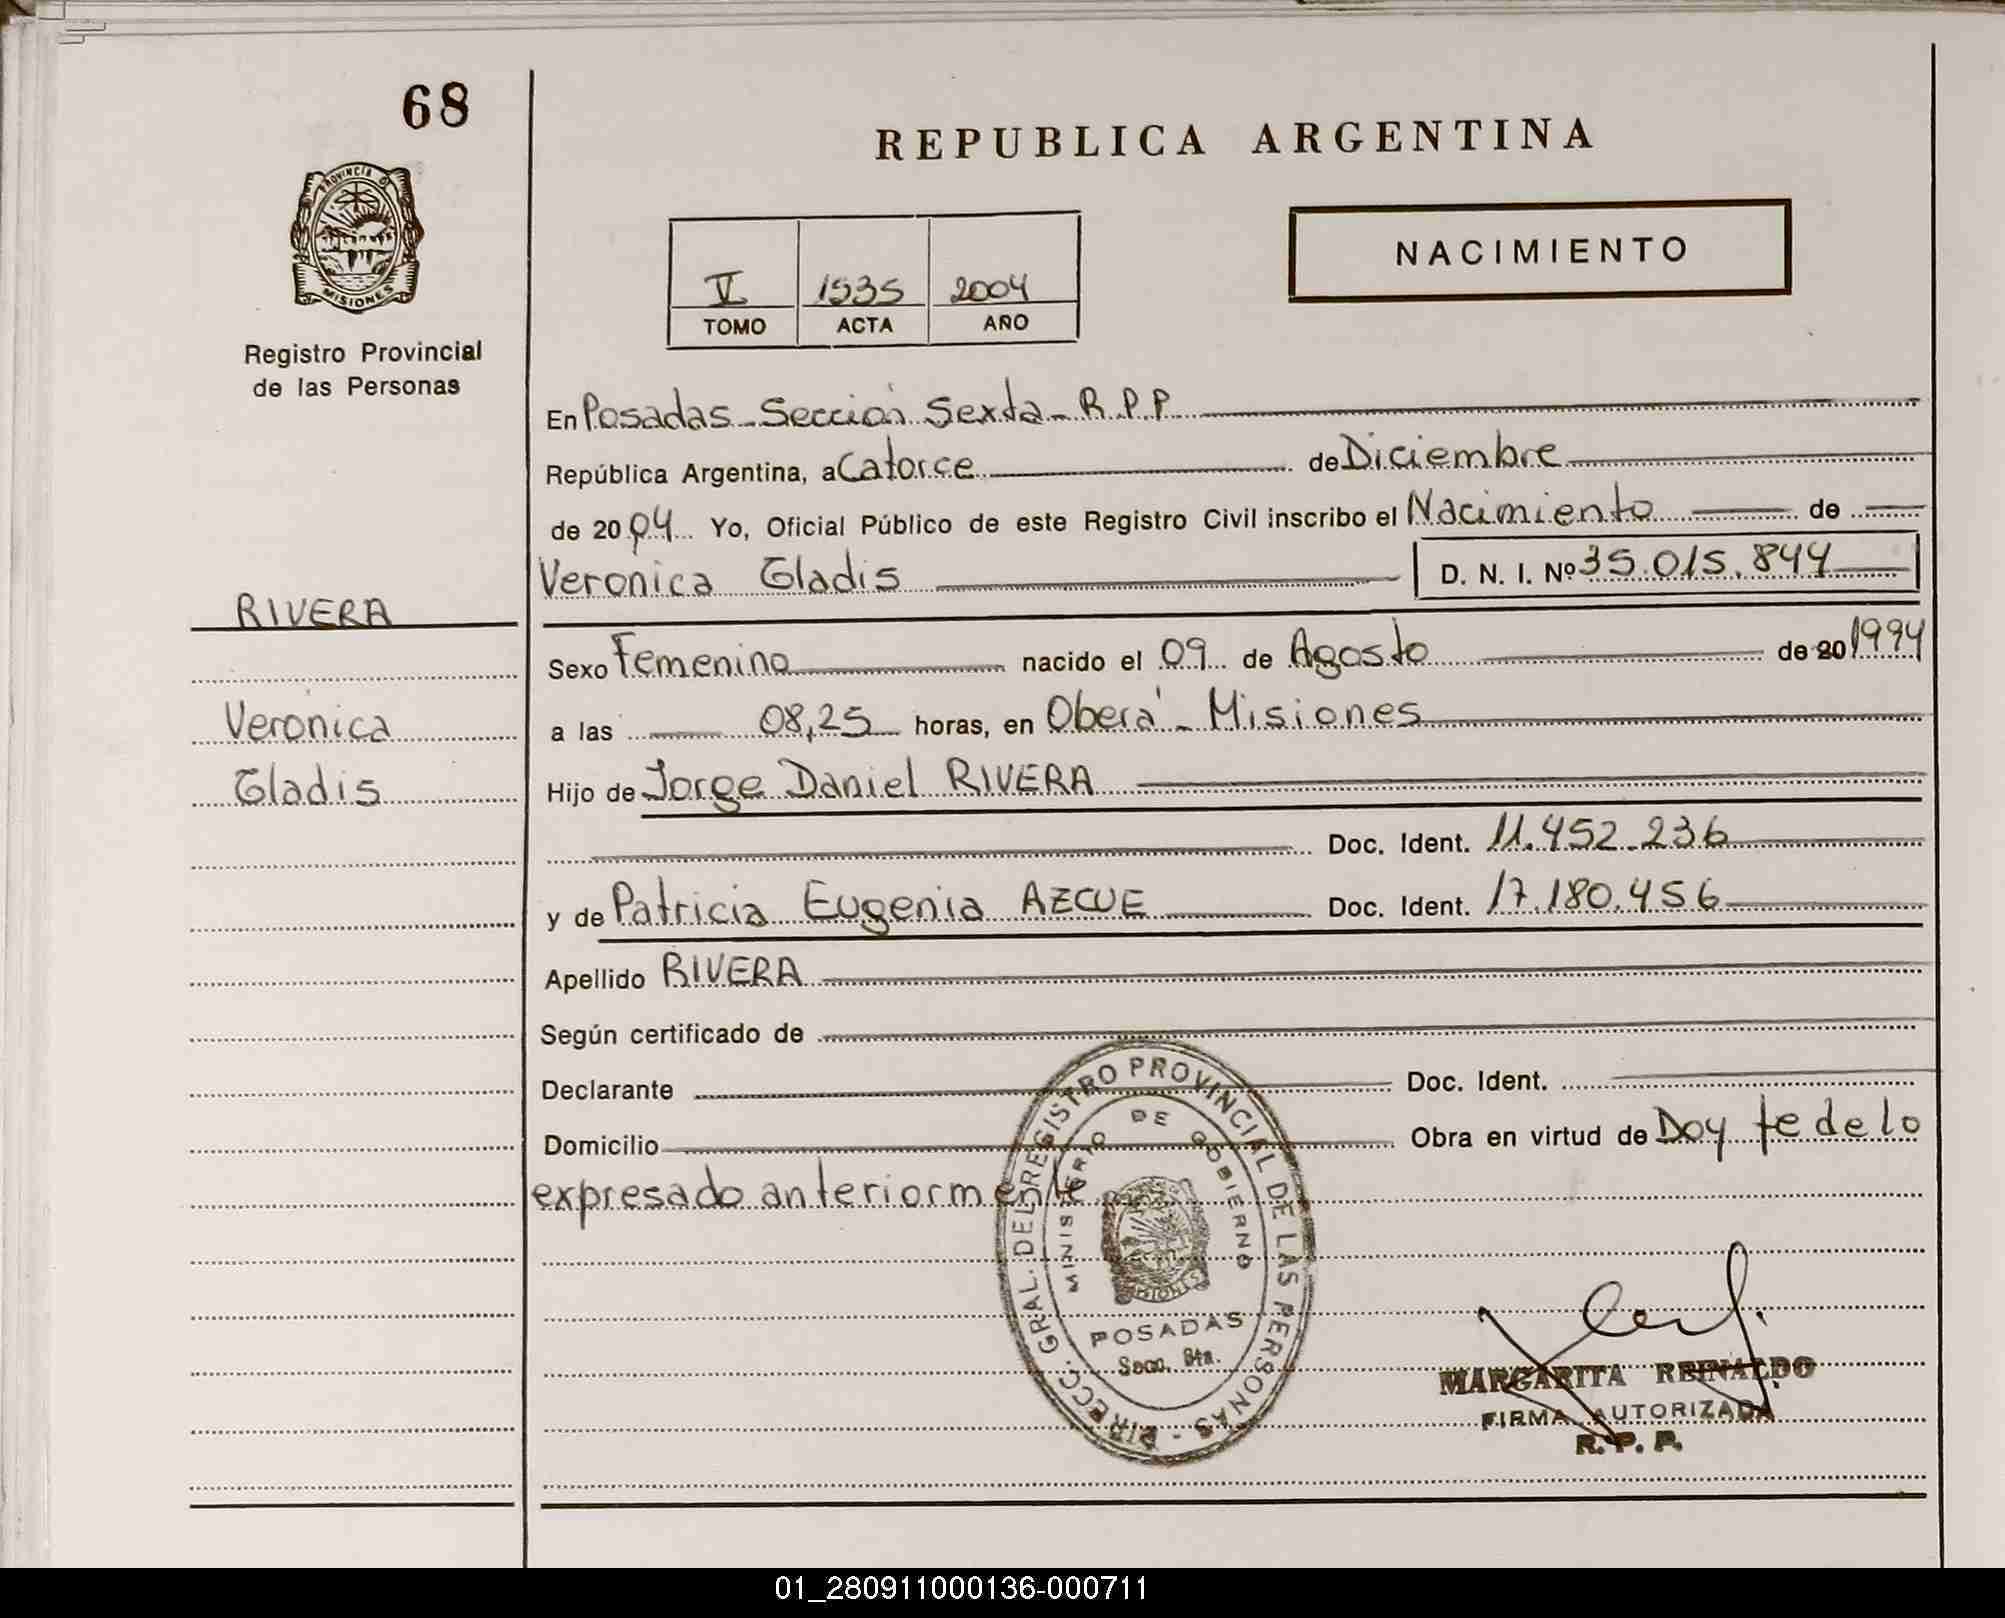 68
REPUBLICA ARGENTINA
PROVINCIA D
MISIONES
Registro Provincial
de las Personas
NACIMIENTO
V 1535 2004
TOMO ACTA AÑO
En Posadas - Sección Sexta - R.P.P
República Argentina, a Catorce de Diciembre
de 2004 Yo, Oficial Público de este Registro Civil inscribo el Nacimiento de
Veronica Gladis D. N. I. Nº 35.015.844
RIVERA
Veronica
Gladis
Sexo Femenino nacido el 09 de Agosto de 20 1994
a las 08,25 horas, en Oberá - Misiones
Hijo de Jorge Daniel RIVERA
Doc. Ident. 11.452.236
y de Patricia Eugenia AZCUE Doc. Ident. 17.180.456
Apellido RIVERA
Según certificado de
Declarante Doc. Ident.
Domicilio Obra en virtud de Doy fe de lo
expresado anteriormente
DIRECC. GRAL. DEL REGISTRO PROVINCIAL DE LAS PERSONAS -
MINISTERIO DE GOBIERNO
MISIONES
POSADAS
Secc. 6ta.
MARGARITA REINALDO
FIRMA AUTORIZADA
R. P. P.
01_280911000136-000711